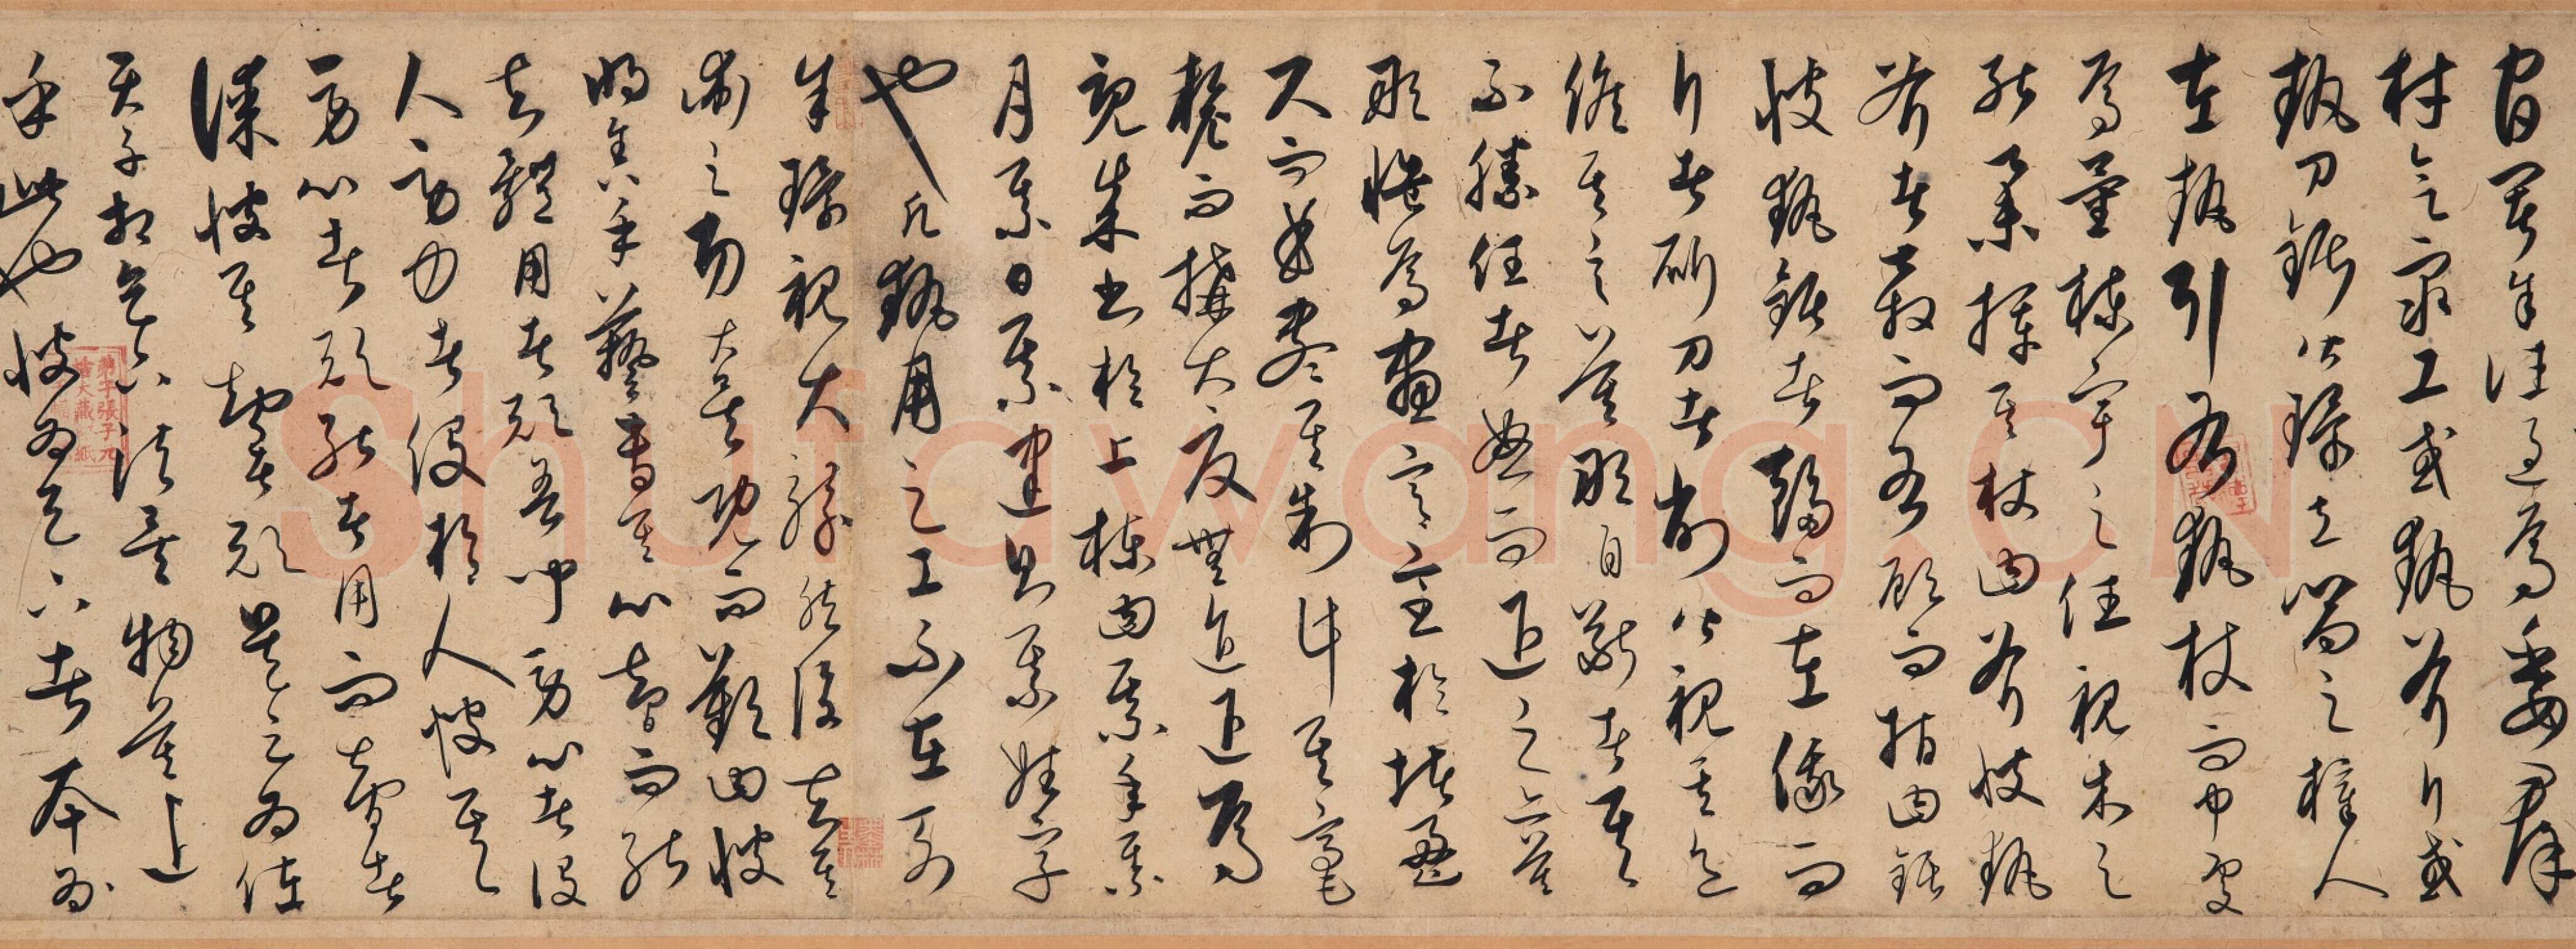 官署余往過焉委群
材會衆工或執斧斤或
執刀鋸皆環立嚮之梓人
左執引右執杖而中處
焉量棟宇之任視木之
能舉揮其杖曰斧彼執
斧者奔而右顧而指曰鋸
彼執鋸者趨而左俄而
斤者斫刀者削皆視其色
俟其言莫敢自斷者其
不勝任者怒而退之亦莫
敢慍焉畫宮於堵盈
尺而曲盡其制計其毫
釐而構大廈無進退焉
既成書於上棟曰某年某
月某日某建則其姓字
也凡執用之工不在列
余環視大駭然後知其
術之功大矣既而歎曰彼
將舍其手藝專其心智而能
知體要者歟吾聞勞心者役
人勞力者役於人彼其
勞心者歟能者用而智者
謀彼其智者歟是足為佐
天子相天下法矣物莫近
乎此也彼為天下者本於
Shufawang.CN